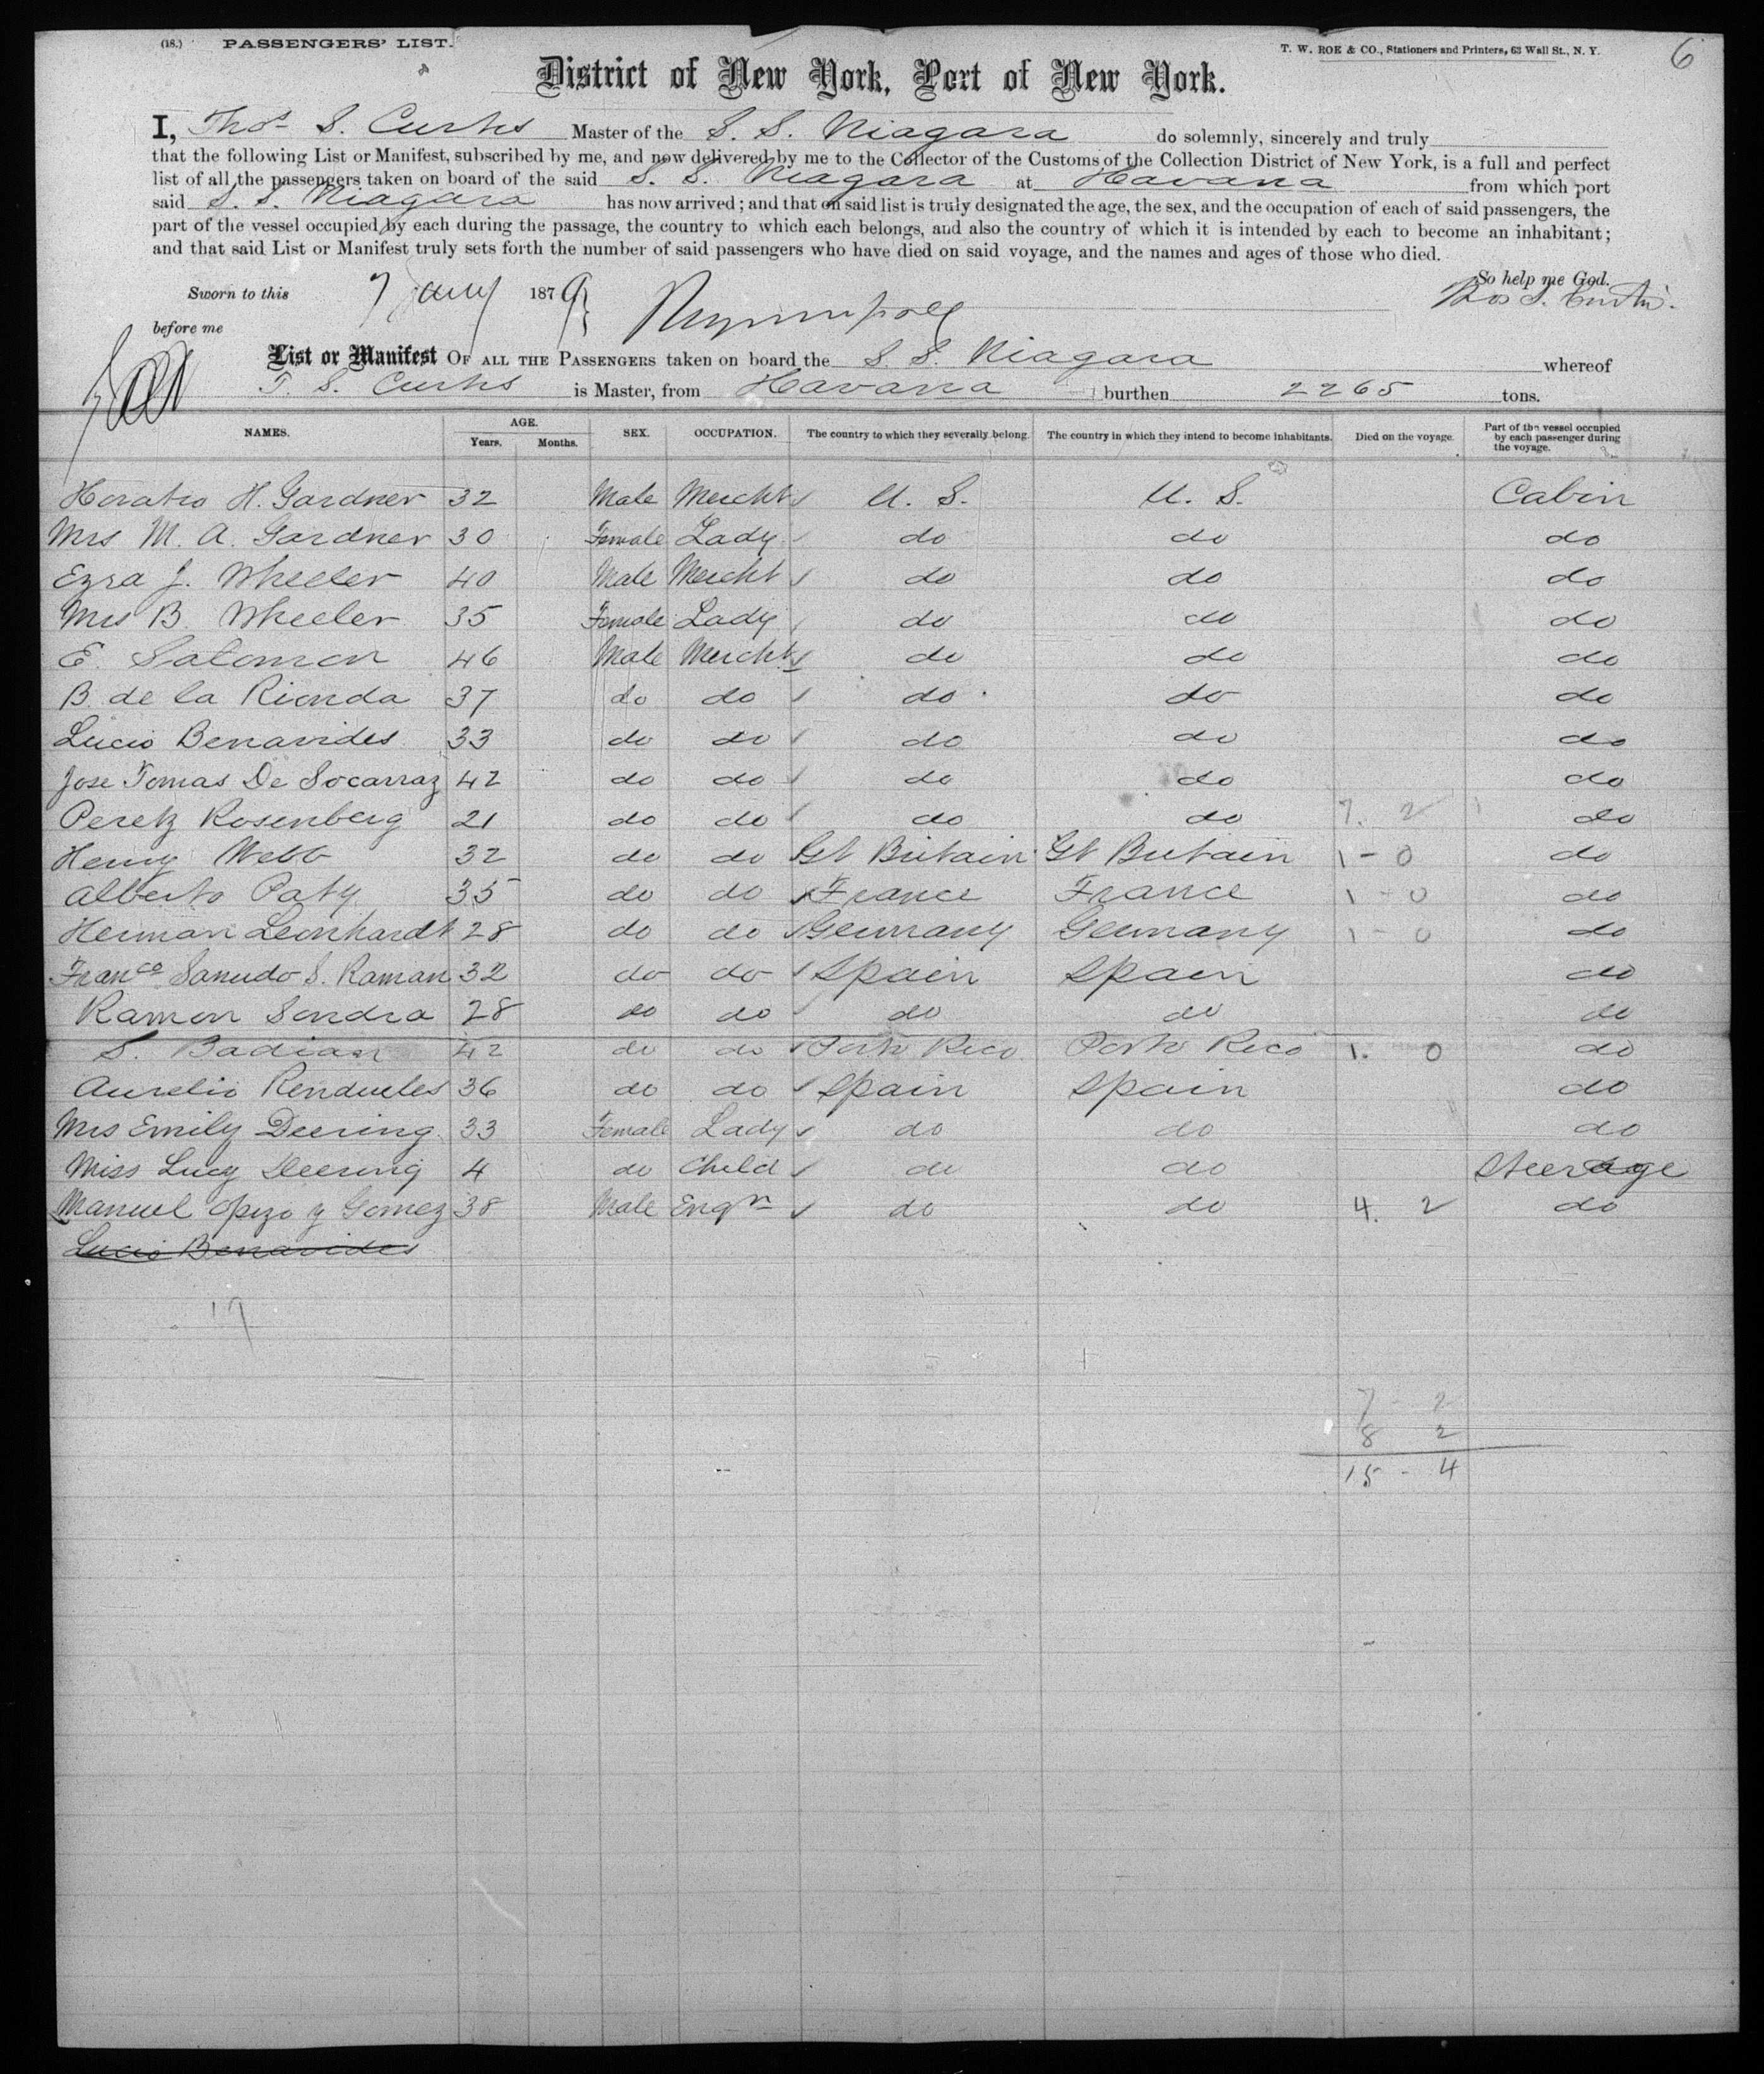 (18.) PASSENGERS' LIST.
T. W. ROE & CO., Stationers and Printers, 63 Wall St., N. Y.
6
District of New York, Port of New York.
I, Thos S. Curtis Master of the S. S. Niagara do solemnly, sincerely and truly
that the following List or Manifest, subscribed by me, and now delivered by me to the Collector of the Customs of the Collection District of New York, is a full and perfect
list of all the passengers taken on board of the said S. S. Niagara at Havana from which port
said S. S. Niagara has now arrived; and that on said list is truly designated the age, the sex, and the occupation of each of said passengers, the
part of the vessel occupied by each during the passage, the country to which each belongs, and also the country of which it is intended by each to become an inhabitant;
and that said List or Manifest truly sets forth the number of said passengers who have died on said voyage, and the names and ages of those who died.
So help me God.
Sworn to this 7 Jany 1879
Thos S. Curtis.
before me
List or Manifest OF ALL THE PASSENGERS taken on board the S. S. Niagara whereof
T. S. Curtis is Master, from Havana burthen 2265 tons.
NAMES. AGE. Years. Months. SEX. OCCUPATION. The country to which they severally belong. The country in which they intend to become inhabitants. Died on the voyage. Part of the vessel occupied by each passenger during the voyage.
Horatio H. Gardner 32 Male Mercht U. S. U. S. Cabin
Mrs M. A. Gardner 30 Female Lady do do do
Ezra J. Wheeler 40 Male Mercht do do do
Mrs B. Wheeler 35 Female Lady do do do
E. Salomon 46 Male Mercht do do do
B. de la Rionda 37 do do do do do
Lucio Benavides 33 do do do do do
Jose Tomas De Socarraz 42 do do do do do
Peretz Rosenberg 21 do do do do 7. 2 do
Henry Webb 32 do do Gt Britain Gt Britain 1 - 0 do
Alberto Paty 35 do do France France 1 - 0 do
Herman Leonhardt 28 do do Germany Germany 1 - 0 do
Franco Sanudo S. Raman 32 do do Spain Spain do
Ramon Sondra 28 do do do do do
S. Badian 42 do do Porto Rico Porto Rico 1. 0 do
Aurelio Rendueles 36 do do Spain Spain do
Mrs Emily Deering 33 Female Lady do do do
Miss Lucy Deering 4 do Child do do Steerage
Manuel Opizo y Gomez 38 Male Engr do do 4. 2 do
Lucio Benavides
19
7 - 2
8 2
15 - 4